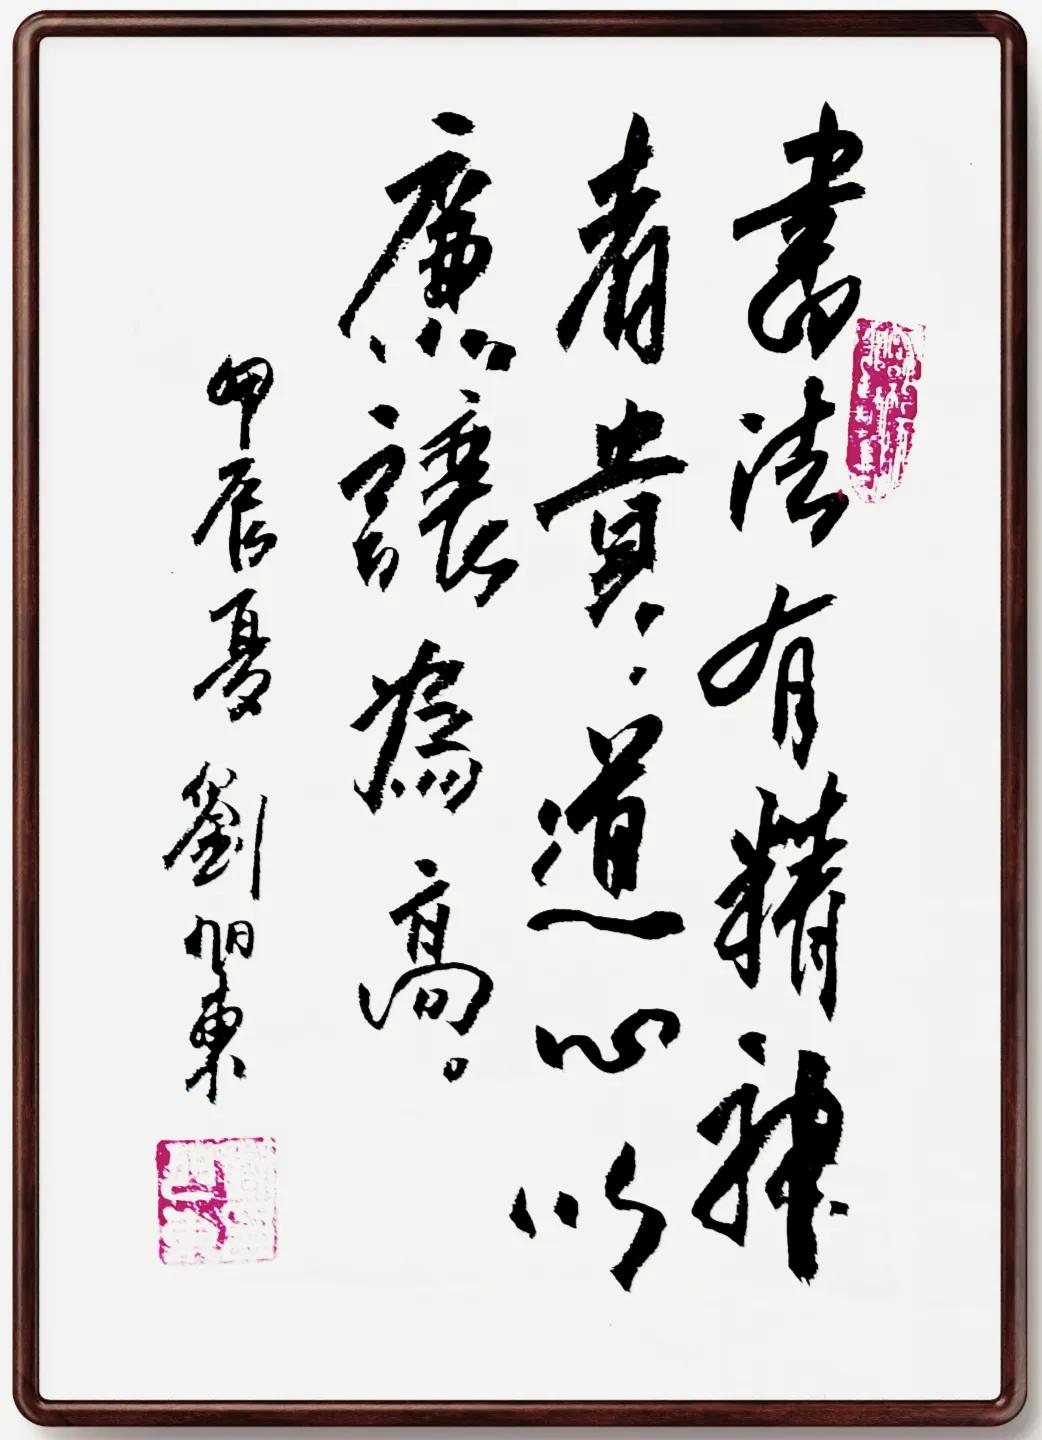 書法有精神
者貴．道心以
廉讓為高。
甲辰夏 劉旭東